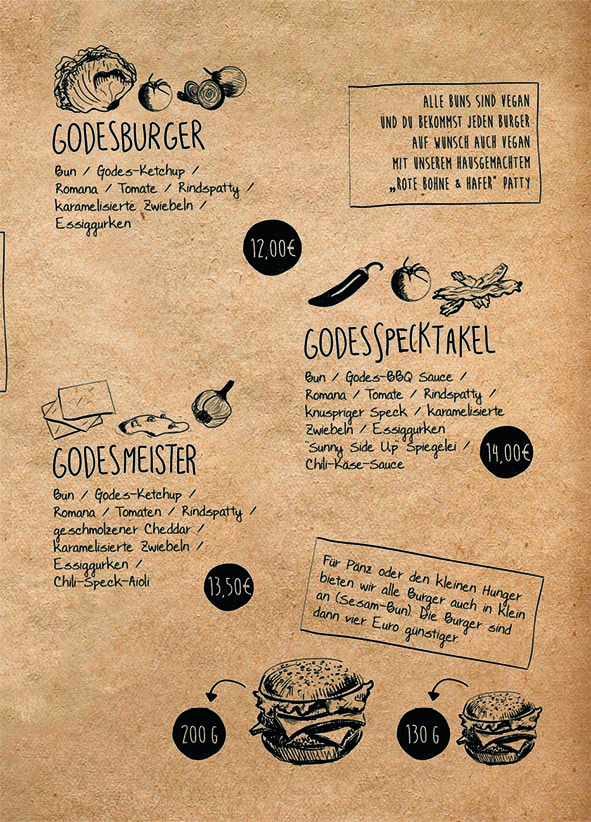 GODESBURGER
Bun / Godes-Ketchup /
Romana / Tomate / Rindspatty /
karamelisierte Zwiebeln /
Essiggurken
12,00€
ALLE BUNS SIND VEGAN
UND DU BEKOMMST JEDEN BURGER
AUF WUNSCH AUCH VEGAN
MIT UNSEREM HAUSGEMACHTEM
„ROTE BOHNE & HAFER" PATTY
GODESSPECKTAKEL
Bun / Godes-BBQ Sauce /
Romana / Tomate / Rindspatty /
knuspriger Speck / karamelisierte
Zwiebeln / Essiggurken
"Sunny Side Up" Spiegelei /
Chili-Käse-Sauce
14,00€
GODESMEISTER
Bun / Godes-Ketchup /
Romana / Tomaten / Rindspatty /
geschmolzener Cheddar /
karamelisierte Zwiebeln /
Essiggurken /
Chili-Speck-Aioli
13,50€
Für Pänz oder den kleinen Hunger
bieten wir alle Burger auch in klein
an (Sesam-Bun). Die Burger sind
dann vier Euro günstiger.
200 G
130 G